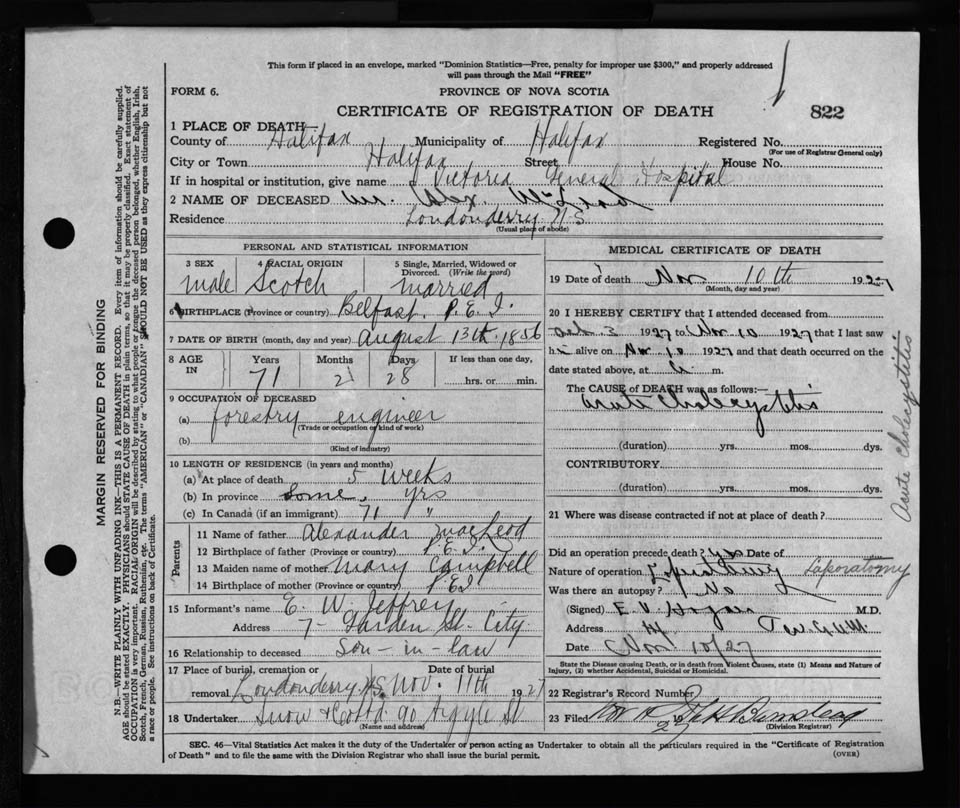 This form if placed in an envelope, marked "Dominion Statistics—Free, penalty for improper use $300," and properly addressed
will pass through the Mail "FREE"
FORM 6.
PROVINCE OF NOVA SCOTIA
CERTIFICATE OF REGISTRATION OF DEATH
822
1 PLACE OF DEATH—
County of Halifax Municipality of Halifax Registered No.
(For use of Registrar General only)
City or Town Halifax Street House No.
If in hospital or institution, give name Victoria General Hospital
2 NAME OF DECEASED Mr. Alex. McLeod
Residence Londonderry N.S
(Usual place of abode)
PERSONAL AND STATISTICAL INFORMATION
3 SEX male
4 RACIAL ORIGIN Scotch
5 Single, Married, Widowed or Divorced. (Write the word) married
6 BIRTHPLACE (Province or country) Belfast, P.E.I.
7 DATE OF BIRTH (month, day and year) August 13th, 1856
8 AGE IN Years 71 Months 2 Days 28 If less than one day, hrs. or min.
9 OCCUPATION OF DECEASED
(a) forestry engineer
(Trade or occupation or kind of work)
(b)
(Kind of industry)
10 LENGTH OF RESIDENCE (in years and months)
(a) At place of death 5 weeks
(b) In province some yrs
(c) In Canada (if an immigrant) 71 "
Parents
11 Name of father Alexander MacLeod
12 Birthplace of father (Province or country) P.E.I.
13 Maiden name of mother Mary Campbell
14 Birthplace of mother (Province or country) P.E.I
15 Informant's name E. W. Jeffrey
Address 7- Garden St- City
16 Relationship to deceased Son-in-law
17 Place of burial, cremation or removal Londonderry NS Date of burial Nov. 11th 1927
18 Undertaker Snow & Co Ltd 90 Argyle St
(Name and address)
MEDICAL CERTIFICATE OF DEATH
19 Date of death Nov 10th 1927
(Month, day and year)
20 I HEREBY CERTIFY that I attended deceased from
Oct. 3 1927 to Nov 10 1927 that I last saw
h alive on Nov 10 1927 and that death occurred on
date stated above, at m.
The CAUSE OF DEATH was as follows:—
acute cholecystitis
(duration) yrs. mos. dys.
CONTRIBUTORY
(duration) yrs. mos. dys.
21 Where was disease contracted if not at place of death?
Did an operation precede death? yes Date of
Nature of operation Laporatomy
Was there an autopsy? No
(Signed) E. V. Hogan M.D.
Address
Date Nov 10/27
State the Disease causing Death, or in death from Violent Causes, state (1) Means and Nature of
Injury, (2) whether Accidental, Suicidal or Homicidal.
22 Registrar's Record Number
23 Filed Nov 19
(Division Registrar)
SEC. 46—Vital Statistics Act makes it the duty of the Undertaker or person acting as Undertaker to obtain all the particulars required in the "Certificate of Registration
of Death" and to file the same with the Division Registrar who shall issue the burial permit.
(OVER)
Acute Cholecystitis
MARGIN RESERVED FOR BINDING
N.B.—WRITE PLAINLY WITH UNFADING INK—THIS IS A PERMANENT RECORD. Every item of information should be carefully supplied.
AGE should be stated EXACTLY. PHYSICIANS should STATE CAUSE OF DEATH in plain terms, so that it may be properly classified. Exact statement of
OCCUPATION is very important. RACIAL ORIGIN will be described by stating to what people or tongue the deceased person belonged, whether English, Irish,
Scotch, French, German, Russian, Ruthenian, etc. The terms "AMERICAN" or "CANADIAN" SHOULD NOT BE USED as they express citizenship but not
a race or people. See instructions on back of Certificate.